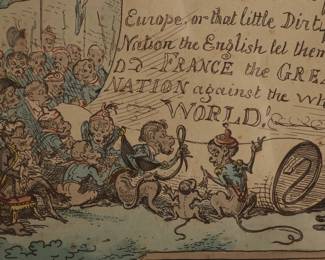 Europe, or that little Dirty
Nation the English let them
FRANCE the GREA
NATION against the Wh
WORLD!